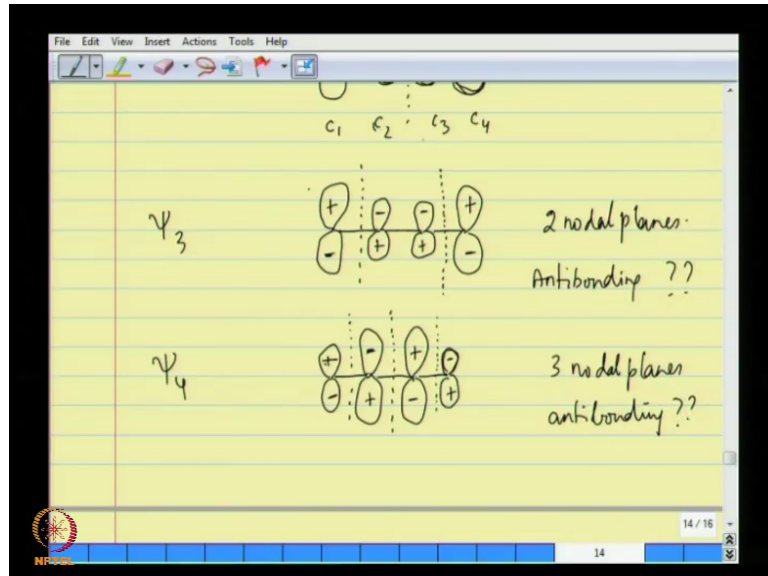 File Edit View Insert Actions Tools Help
C1 C2 C3 C4
Ψ3
+ - - +
- + + -
2 nodal planes.
Antibonding ??
Ψ4
+ - + -
- + - +
3 nodal planes
antibonding ??
14 / 16
14
NPTEL